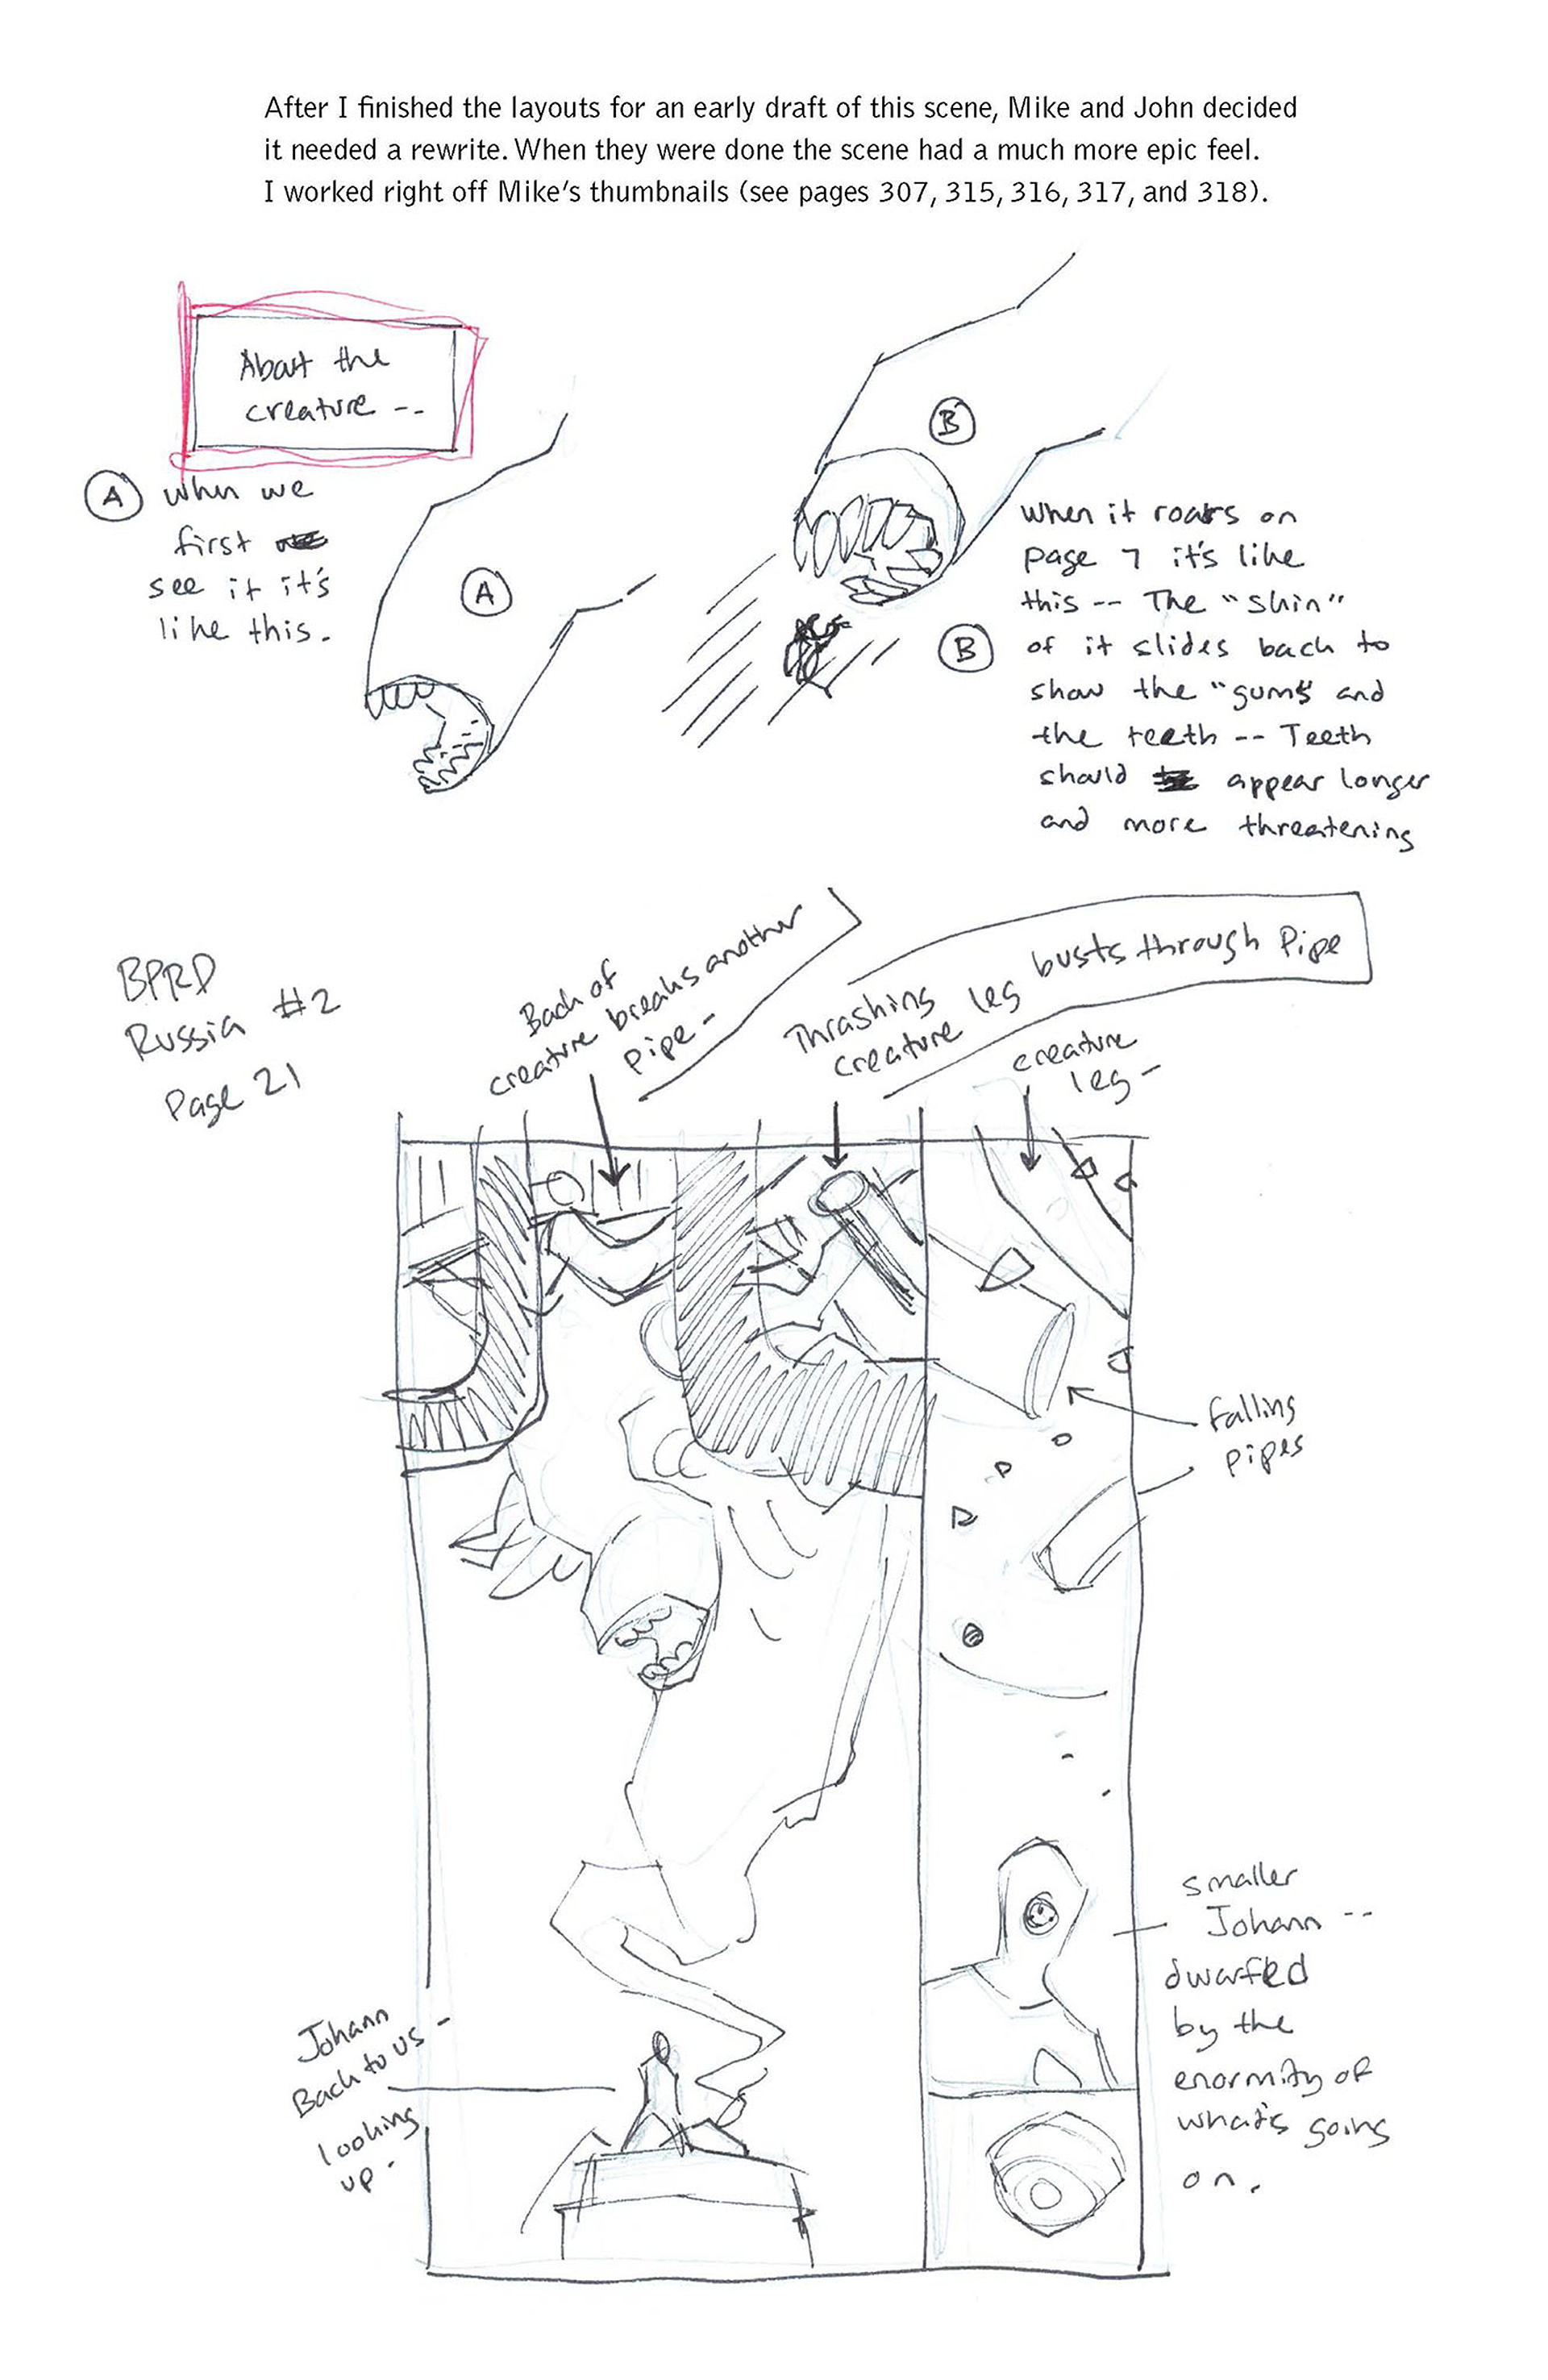 After I finished the layouts for an early draft of this scene, Mike and John decided
it needed a rewrite. When they were done the scene had a much more epic feel.
I worked right off Mike's thumbnails (see pages 307, 315, 316, 317, and 318).
About the
creature --
A when we
first
see it it's
like this.
A
B
when it roars on
page 7 it's like
this -- The "skin"
B of it slides back to
show the "gums" and
the teeth -- Teeth
should appear longer
and more threatening
BPRD
Russia #2
Page 21
Back of
creature breaks another
pipe -
Thrashing
creature leg busts through pipe
creature
leg -
falling
pipes
smaller
Johann --
dwarfed
by the
enormity of
what's going
on.
Johann
Back to us -
looking
up -